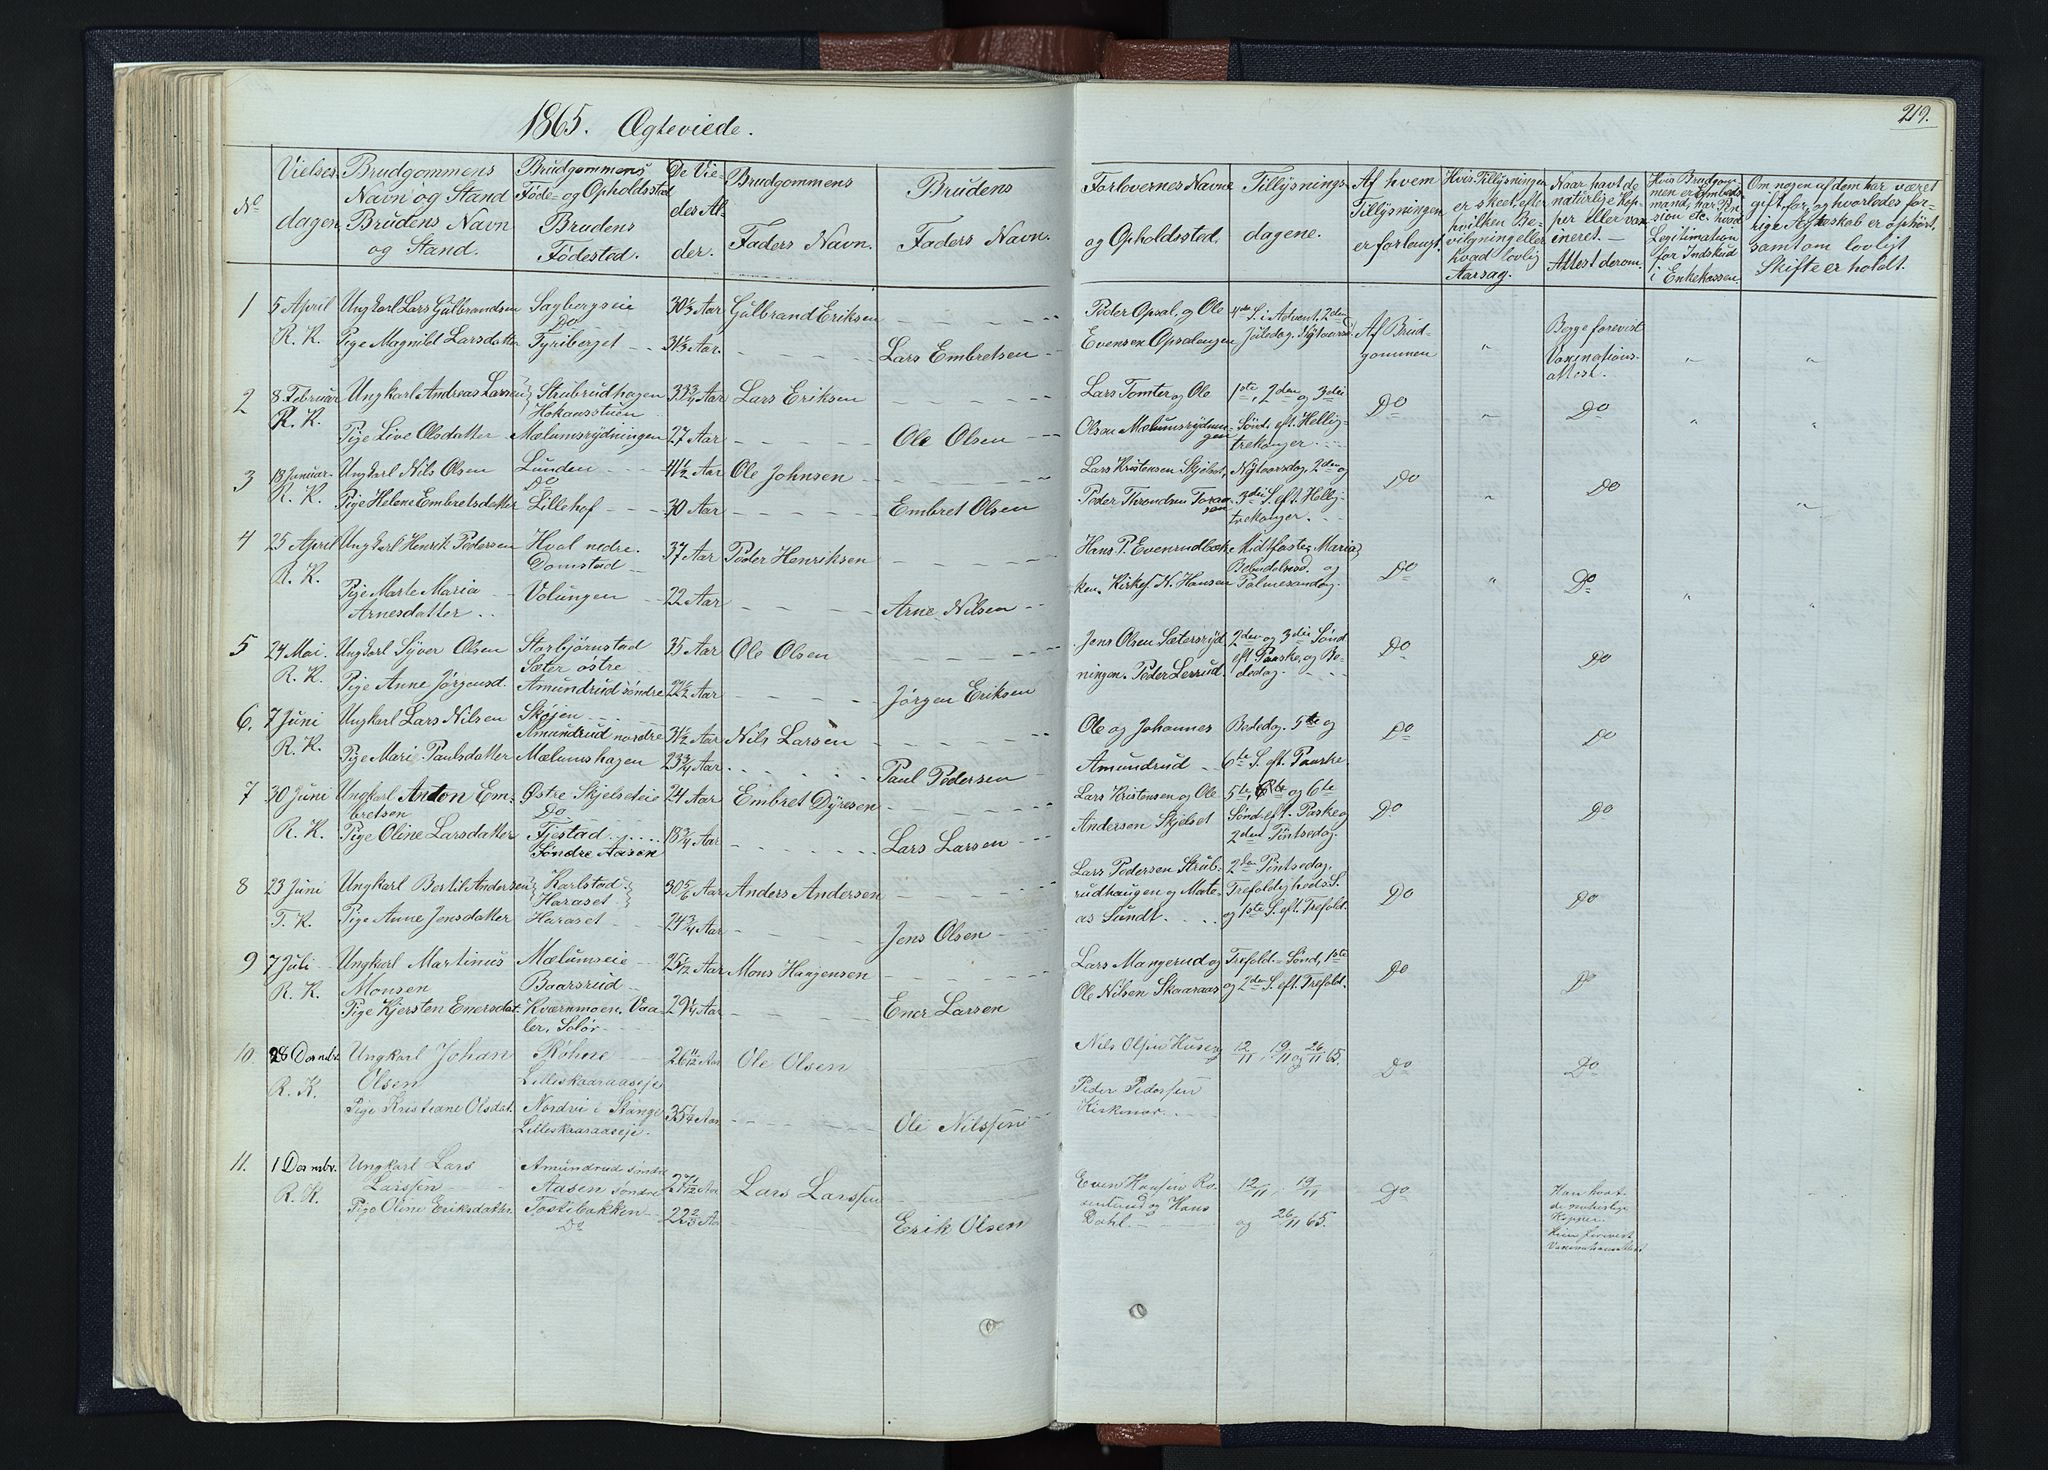 1865. Ægteviede.
219.
No
Vielses
dagen
Brudgommens
Navn og Stand
Brudens Navn
og Stand.
Brudgommens
Føde- og Opholdssted
Brudens
Fødested.
De Vie-
des Al-
der.
Brudgommens
Faders Navn.
Brudens
Faders Navn.
Forlovernes Navne
og Opholdssted.
Tillysnings-
dagene.
Af hvem
Tillysningen
er forlangt.
Hvis Tillysningen
er skeet, efter
hvilken Be-
vilgning eller
hvad lovlig
Aarsag.
Naar havt de
naturlige Kop-
per eller vax-
ineret. –
Attest derom.
Hvis Brudgom-
men er Embeds-
mand, har Pen-
sion etc. hvad
Legitimation
for Indskud
i Enkekassen.
Om nogen af dem har været
gift før, og hvorledes for-
rige Ægteskab er ophørt,
samt om lovligt
Skifte er holdt.
1
5 April
R. K.
Ungkarl Lars Gulbrandsen
Pige Magnild Larsdatter
Sagbergseie
Do
Fyriberget
30 1/3 Aar
31 1/3 Aar
Gulbrand Eriksen
Lars Embretsen
Peder Opsal, og Ole
Evensen Opsalengen
4de S. i Advent, 2den
Juledag, Nytaarsd.
Af Brud-
gommen
"
Begge forevist
Vaxinations-
attest.
"
"
2
8 Februar
R. K.
Ungkarl Andreas Larsen
Pige Live Olsdatter
Strubrudhagen
Hokaasstuen
Mælumsrydningen
33 3/4 Aar
27 Aar
Lars Eriksen
Ole Olsen
Lars Tomter og Ole
Olsen Mælumsrydnin-
gen
1ste, 2den og 3die
Sønd. eft. Hellig-
trekonger.
Do
"
Do
"
"
3
18 Januar
R. K.
Ungkarl Nils Olsen
Pige Helene Embretsdatter
Lunden
Do
Lillehof
41 1/2 Aar
30 Aar
Ole Johnsen
Embret Olsen
Lars Kristensen Skjelset,
Peder Throndsen
Nytaarsdag, 2den og
3die S. eft. Hellig-
trekonger.
Do
"
Do
"
4
25 April
R. K.
Ungkarl Henrik Pedersen
Pige Marte Maria
Arnesdatter
Hval nedre.
Domstad
Volungen
37 Aar
22 Aar
Peder Henriksen
Arne Nilsen
Hans P. Evenrudbæk-
ken, Kirkes. N. Hansen
Midtfaste, Maria
Bebudelsesd. og
Palmesøndag.
Do
"
Do
"
"
5
24 Mai.
R. K.
Ungkarl Syver Olsen
Pige Anne Jørgensd.
Storbjørnstad
Sæter østre
Amundrud søndre
35 Aar
22 1/2 Aar
Ole Olsen
Jørgen Eriksen
Jens Olsen Sætersryd-
ningen. Peder Lerrud.
2den og 3die Sønd.
eft. Paaske, og Be-
dedag.
Do
Do
6.
7 Juni
R. K.
Ungkarl Lars Nilsen
Pige Mari Paulsdatter
Skøjen
Amundrud nordre
Mælumshagen
31 1/2 Aar
23 3/4 Aar
Nils Larsen
Paul Pedersen
Ole og Johannes
Amundrud
Bededag. 5te og
6te S. eft. Paaske.
Do
Do
7
30 Juni
R. K.
Ungkarl Anton Em-
bretsen
Pige Oline Larsdatter
Østre Skjelseteie
Do
Fjestad
Søndre Aasen
24 Aar
18 3/4 Aar
Embret Dyresen
Lars Larsen
Lars Kristensen og Ole
Andersen Skjelset
5te, og 6te
Sønd. eft. Paaske og
2den Pintsedag.
Do
Do
8
23 Juni
T. K.
Ungkarl Bertil Andersen
Pige Anne Jensdatter
Karlstad
Haraset
Haraset
30 5/6 Aar
24 3/4 Aar
Anders Andersen
Jens Olsen
Lars Pedersen Strub-
rudhaugen og Mate-
as Sundt.
2den Pintsedag,
Trefoldigheds S.
og 1ste S. eft. Trefold.
Do
Do
9
7 Juli
R. K.
Ungkarl Martinus
Monsen
Pige Kjersten Enersdat.
Mælumseie
Baarsrud
Kværnmoen, Vaa-
ler, Solør
25 1/2 Aar
29 1/4 Aar
Mons Haagensen
Ener Larsen
Lars Mangerud og
Ole Nilsen Skaaraas
Trefold. Sønd, 1ste
og 2den S. eft. Trefold.
Do
Do
10.
28 Decmbr.
R. K.
Ungkarl Johan
Olsen
Pige Kristiane Olsdat.
Røhne
Lilleskaaraaseje
Nordvi i Stange
Lilleskaaraaseje.
26 11/12 Aar
35 1/4 Aar
Ole Olsen
Ole Nilssen
Nils Olsen
Peder Pederssen
Kirkenær
12/11, 19/11 og 26/11 65.
Do
Do
11.
1 Decmbr.
R. K.
Ungkarl Lars
Larssen
Pige Oline Eriksdattr.
Amundrud søndre
Aasen søndre
Tostibakken
Do
27 7/12 Aar
22 2/3 Aar
Lars Larssen
Erik Olsen
Even Hansen Ro-
sentrud og Hans
Dahl.
12/11, 19/11
og 26/11 65.
Do
Han havt
de naturlige
Kopper
Hun forevist
Vaxinationsattest